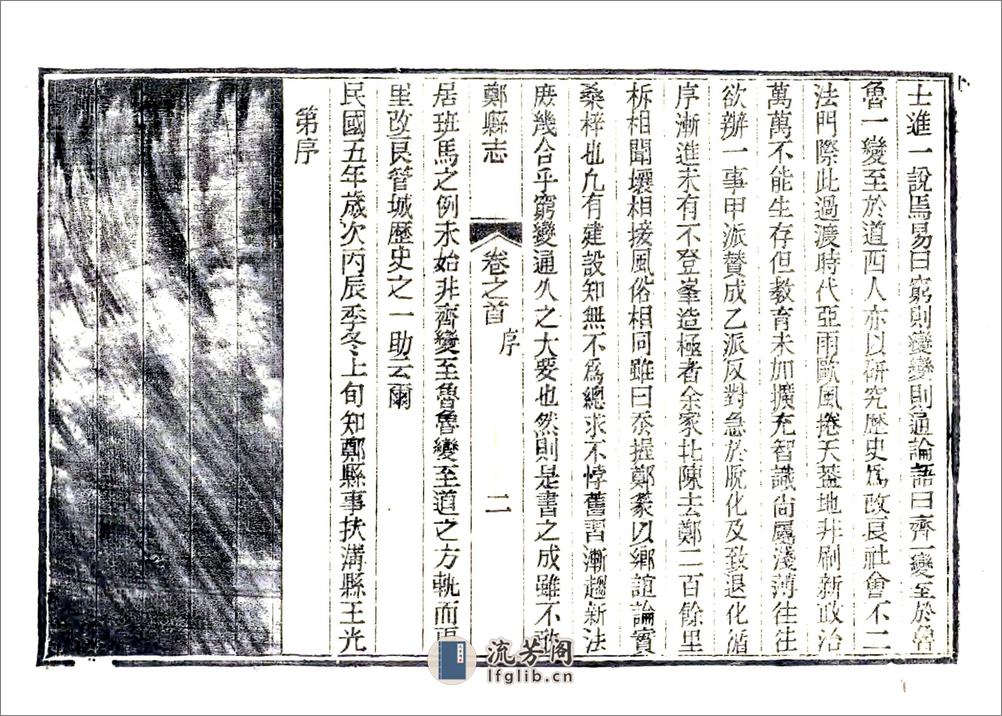 士進一說焉易曰窮則變變則通論語曰齊一變至於魯
魯一變至於道西人亦以研究歷史為改良社會不二
法門際此過渡時代亞雨歐風捲天蓋地非刷新政治
萬萬不能生存但教育未加擴充智識尙屬淺薄往往
欲辦一事甲派贊成乙派反對急於脫化及致退化循
序漸進未有不登峯造極者余家北陳去鄭二百餘里
柝相聞壤相接風俗相同雖曰忝握鄭篆以鄉誼論實
桑梓也凡有建設知無不爲總求不悖舊習漸趨新法
庻幾合乎窮變通久之大要也然則是書之成雖不敢
鄭縣志
卷之首
序
二
居班馬之例未始非齊變至魯魯變至道之方軌而更
里改良管城歷史之一助云爾
民國五年歲次丙辰季冬上旬知鄭縣事扶溝縣王光
第序
流芳閣
lfglib.cn